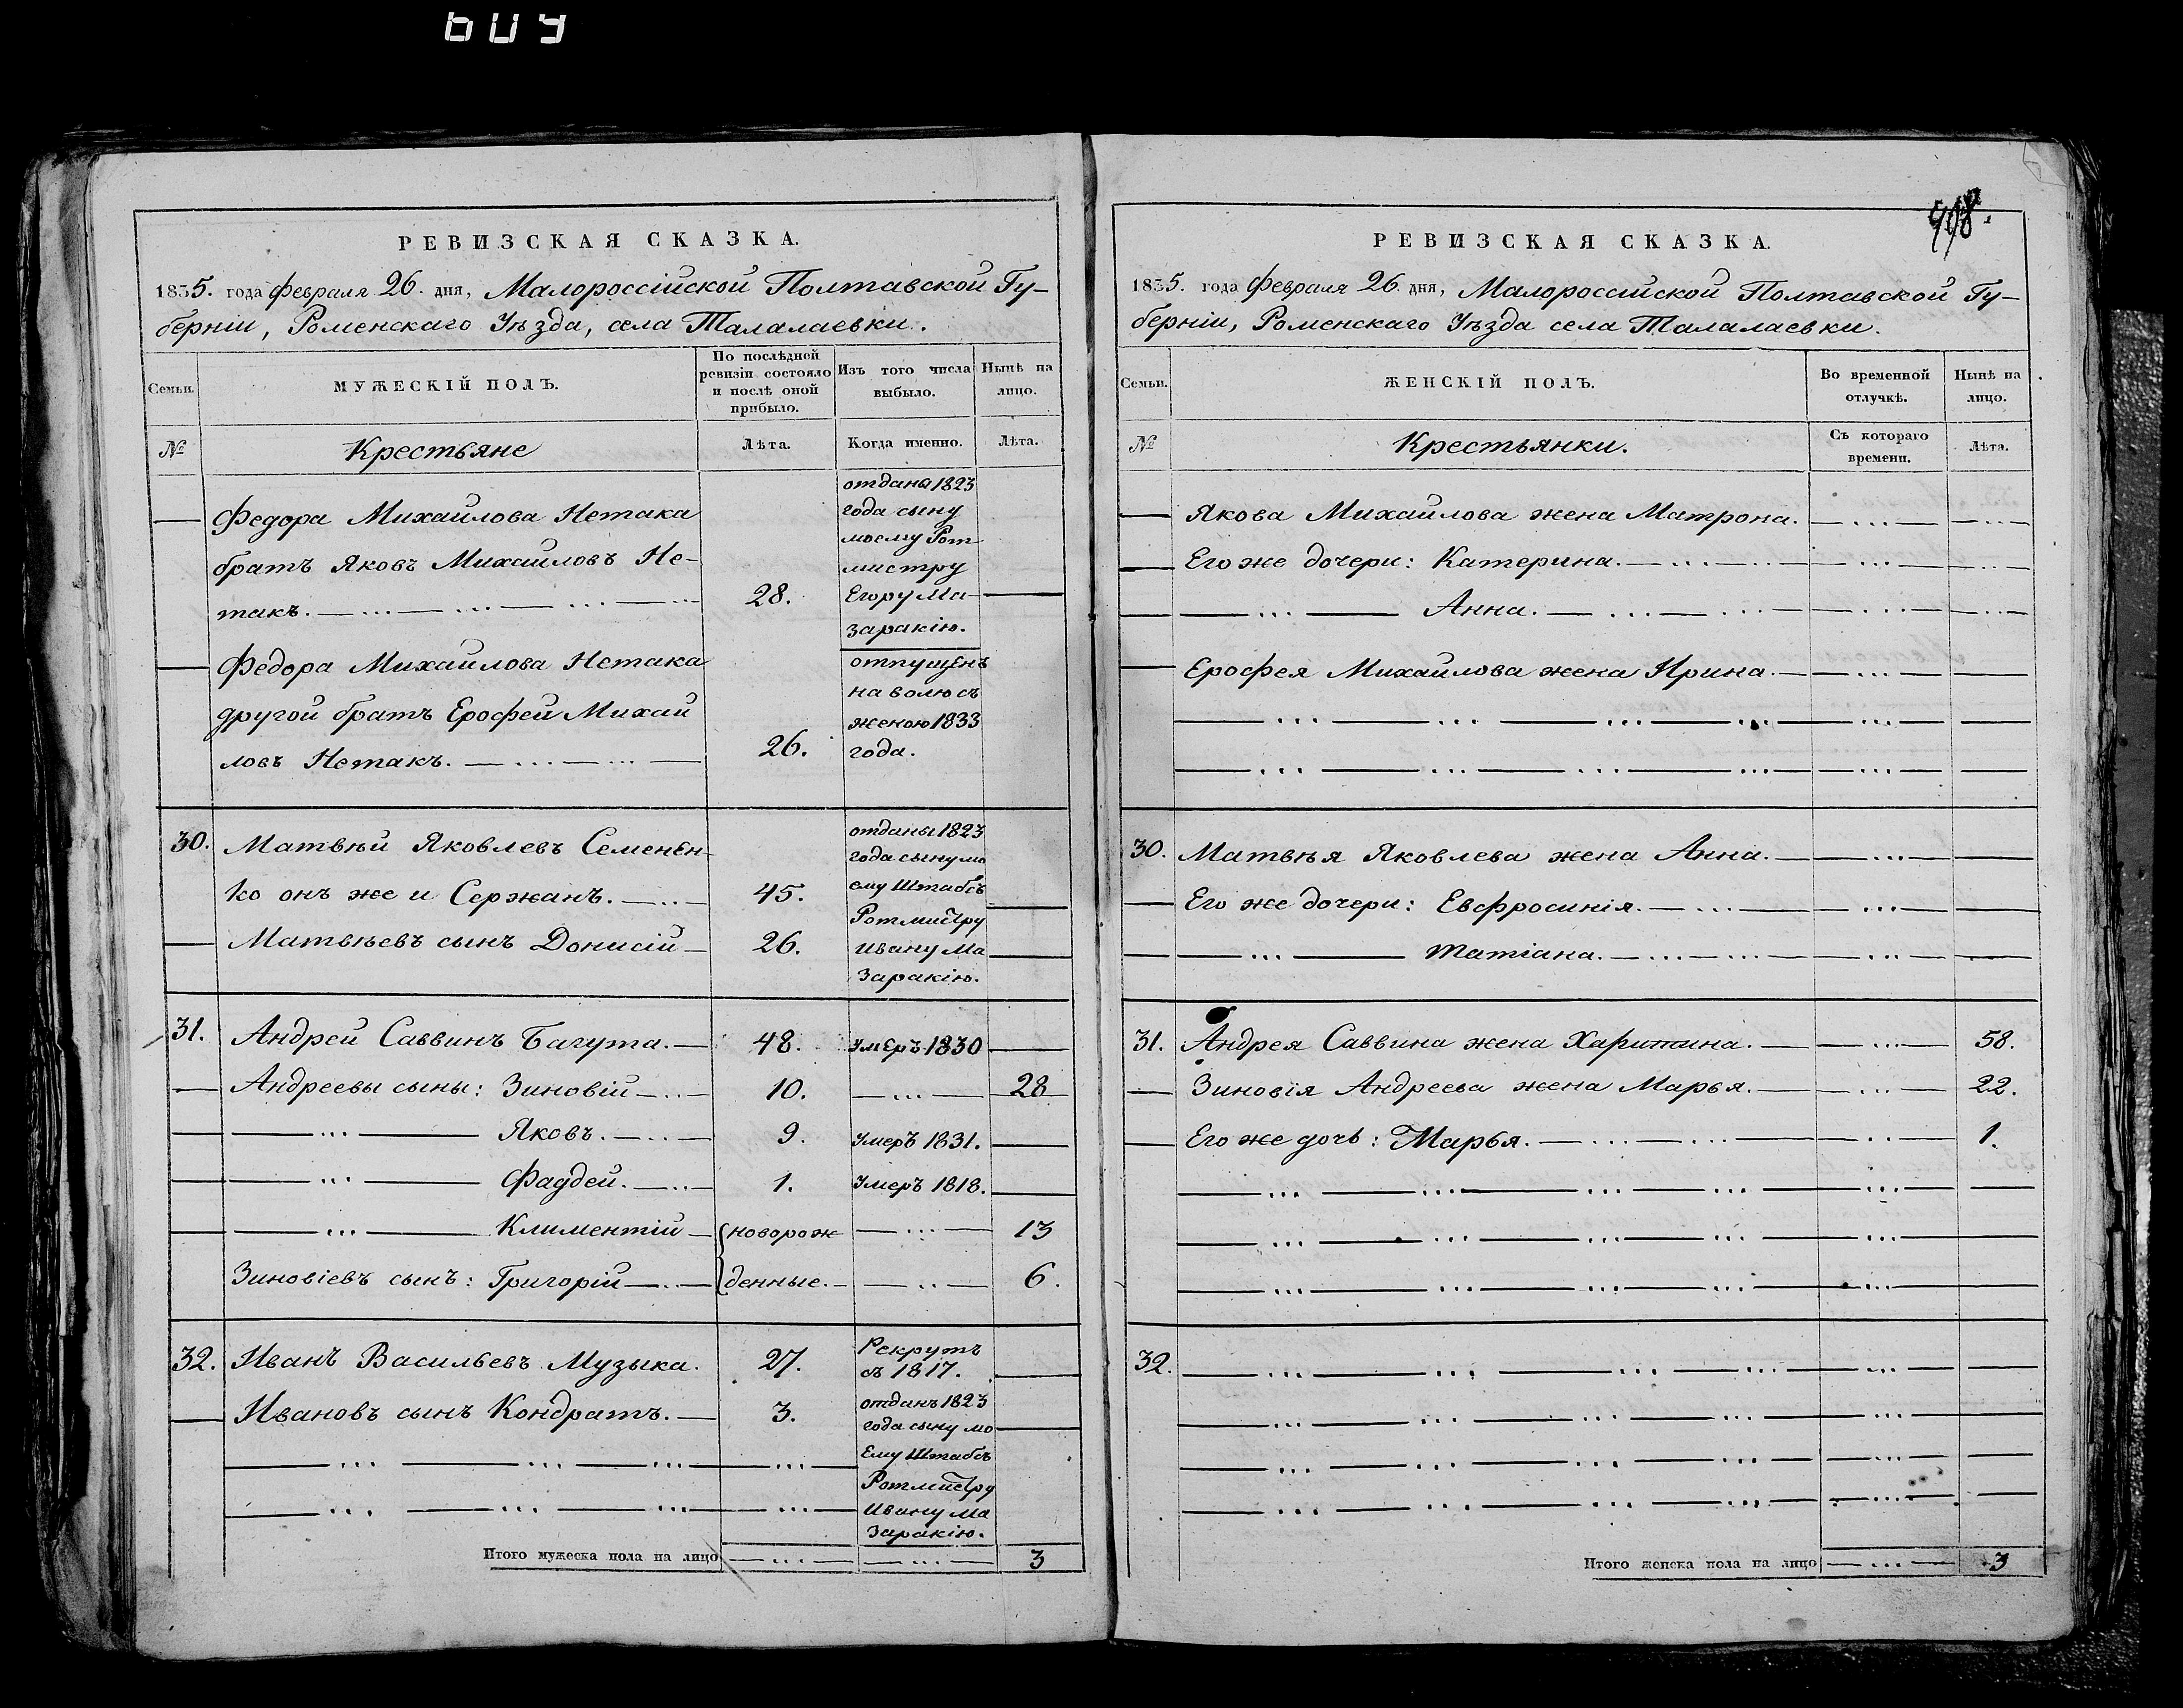 609
РЕВИЗСКАЯ СКАЗКА.
1835. года февраля 26. дня, Малороссійской Полтавской Гу-
берніи, Роменскаго Уѣзда, села Талалаевки.
Семьи.
МУЖЕСКІЙ ПОЛЪ.
По послѣдней
ревизіи состояло
и послѣ оной
прибыло.
Изъ того числа
выбыло.
Нынѣ на
лицо.
№
Крестьяне
Лѣта.
Когда именно.
Лѣта.
Федора Михайлова Нетака
братъ Яковъ Михайловъ Не-
такъ. 28.
отданы 1823
года сыну
моему Рот
мистру
Егору Ма-
заракію.
Федора Михайлова Нетака
другой братъ Ерофей Михай
ловъ Нетакъ. 26.
отпущенъ
на волю съ
женою 1833
года.
30. Матвѣй Яковлевъ Семенен-
ко онъ же и Сержанъ. 45.
Матвѣевъ сынъ Донисій 26.
отданы 1823
года сыну мо
ему Штабсъ
Ротмистру
Ивану Ма
заракію.
31. Андрей Саввинъ Багута. 48. Умеръ 1830
Андреевы сыны: Зиновій 10. 28
Яковъ. 9. Умеръ 1831.
Фаддей. 1. Умеръ 1818.
Климентій новорож 13
Зиновіевъ сынъ: Григорій денные. 6.
32. Иванъ Васильевъ Музыка. 27. Рекрутъ
съ 1817.
Ивановъ сынъ Кондратъ. 3.
отданъ 1823
года сыну мо
ему Штабсъ
Ротмистру
Ивану Ма
заракію.
Итого мужеска пола на лицо 3
РЕВИЗСКАЯ СКАЗКА.
1835. года Февраля 26. дня, Малороссійской Полтавской Гу-
берніи, Роменскаго Уѣзда села Талалаевки.
Семьи.
ЖЕНСКІЙ ПОЛЪ.
Во временной
отлучкѣ.
Нынѣ на
лицо.
№
Крестьянки.
Съ котораго
времени.
Лѣта.
Якова Михайлова жена Матрона.
Его же дочери: Катерина.
Анна.
Ерофея Михайлова жена Ирина.
30. Матвѣя Яковлева жена Анна.
Его же дочери: Евфросинія.
Татіана.
31. Андрея Саввина жена Харитина. 58.
Зиновія Андреева жена Марья. 22.
Его же дочь: Марья. 1.
32.
Итого женска пола на лицо 3